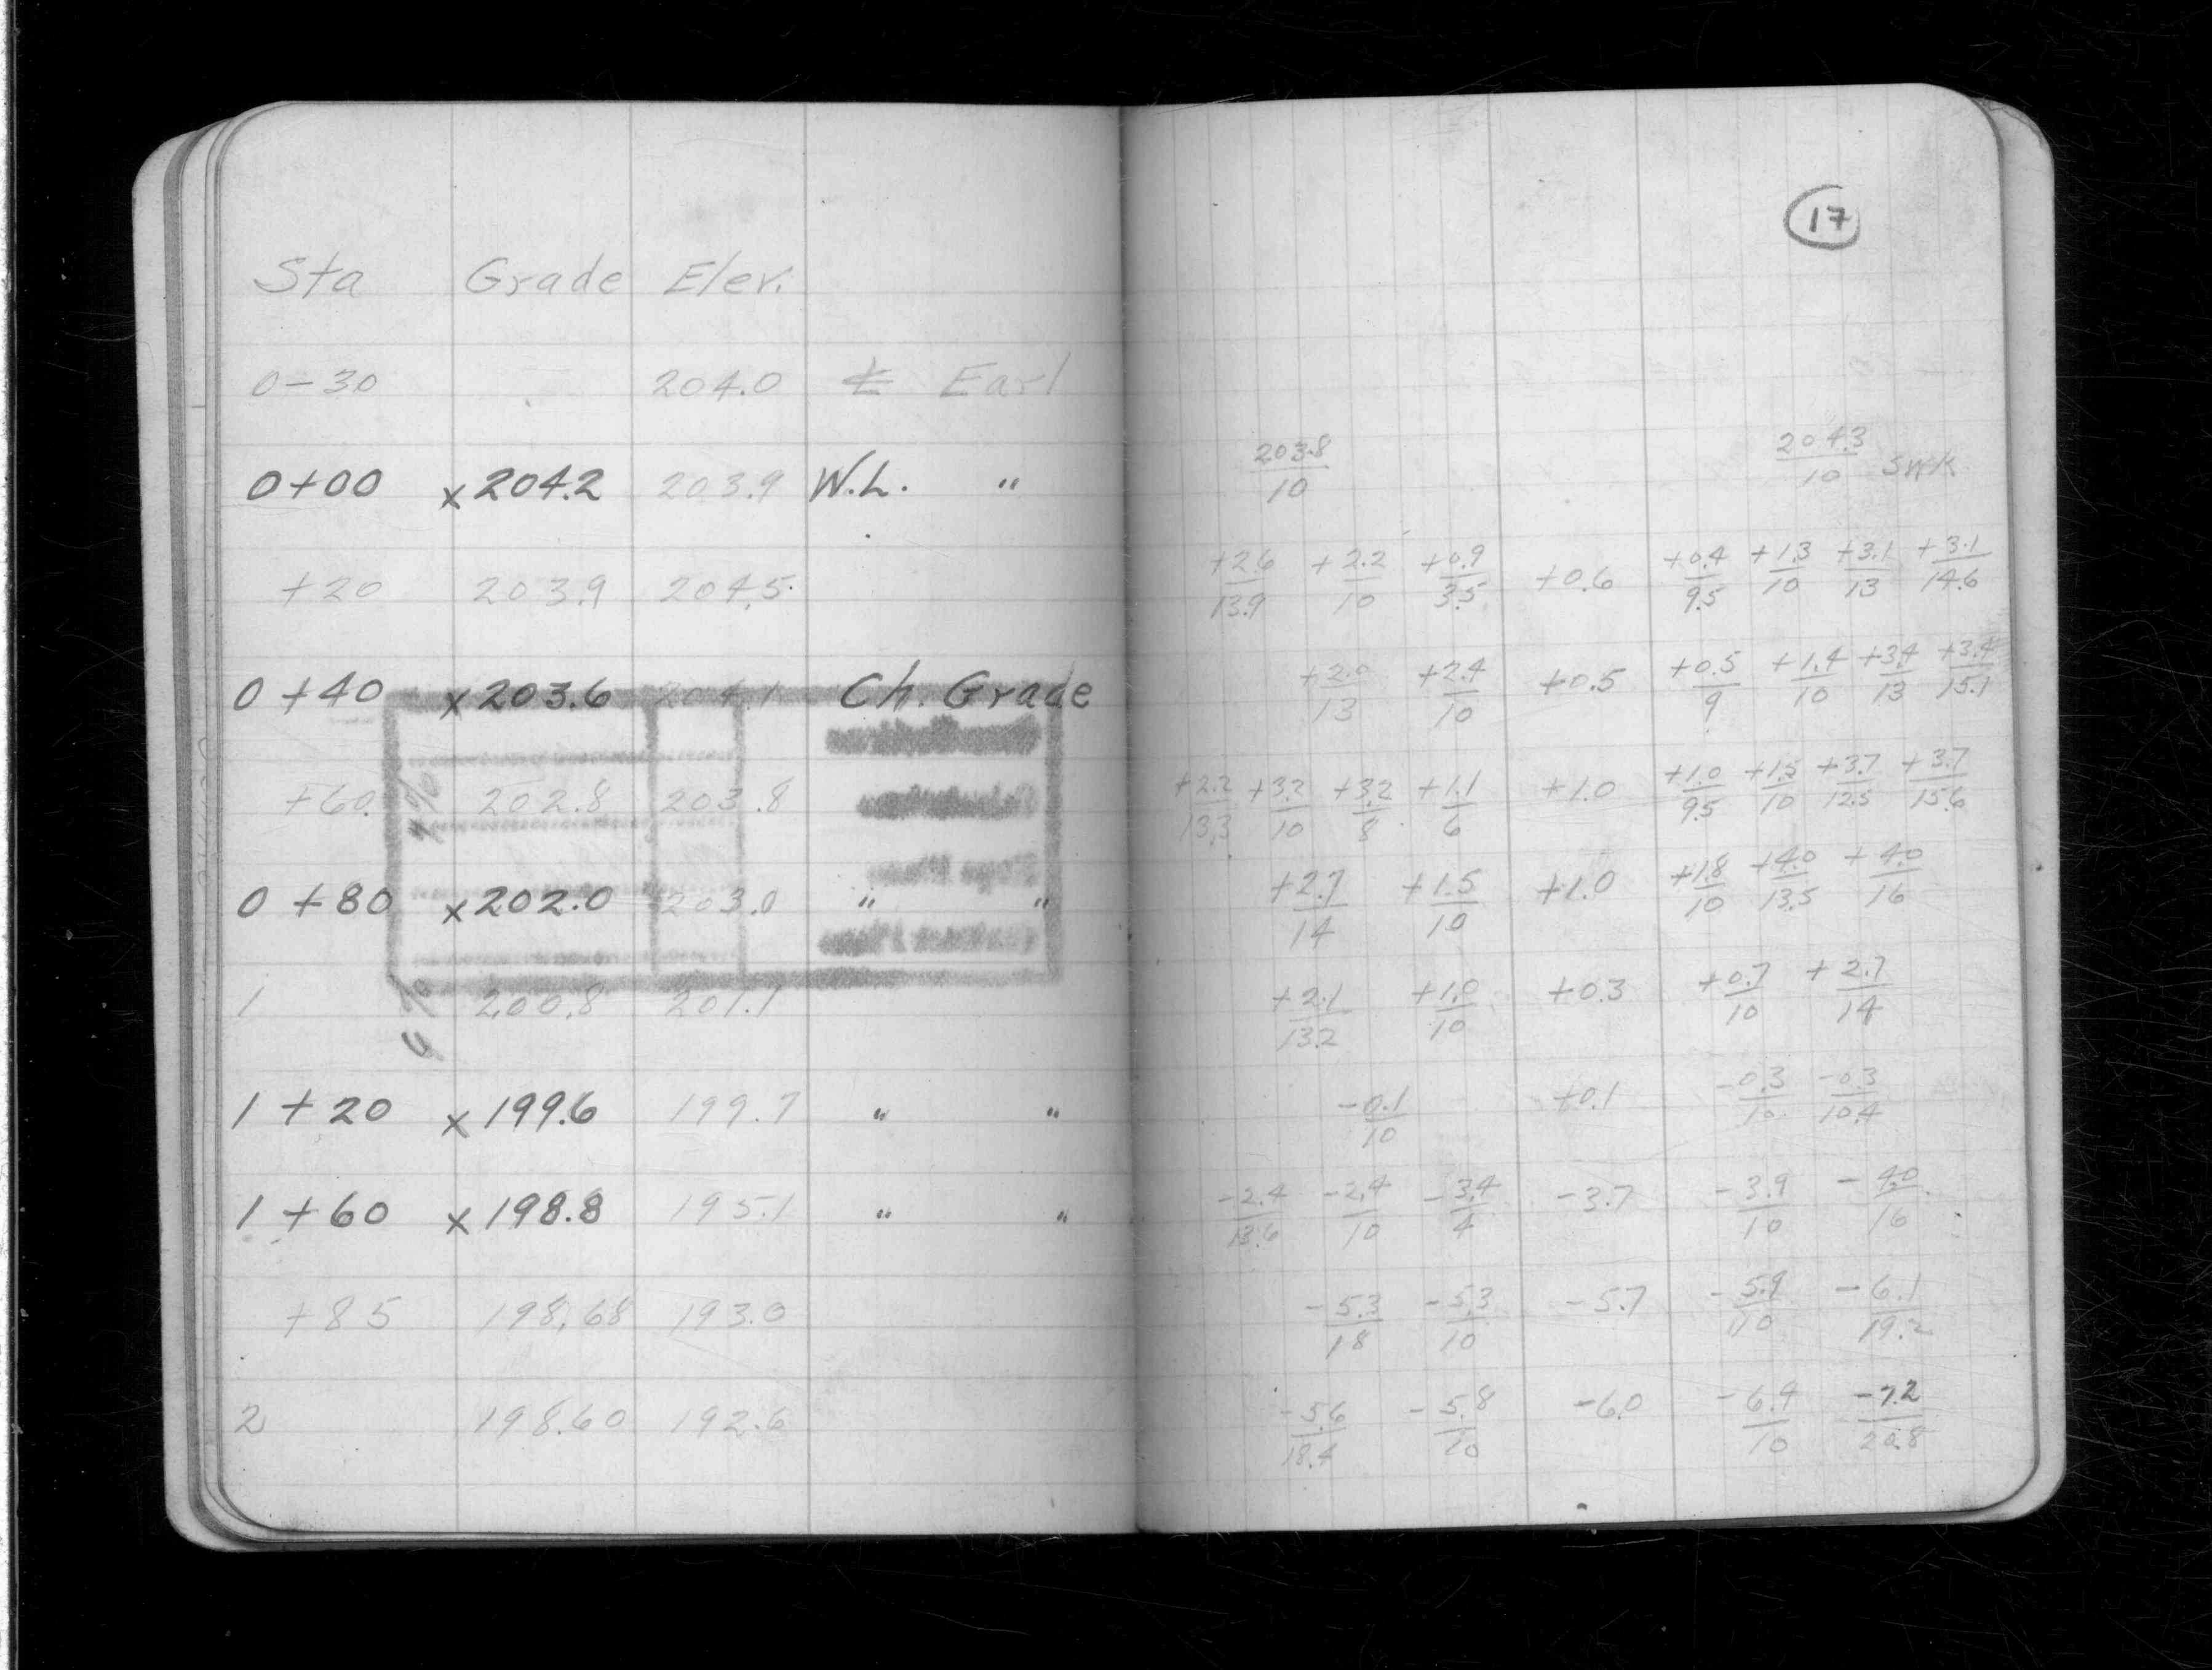 17
Sta Grade Elev.
0-30 204.0 ℄ Earl
0+00 x204.2 203.9 W.L. " 203.8/10 204.3/10 SWK
+20 203.9 204.5 +2.6/13.9 +2.2/10 +0.9/3.5 +0.6 +0.4/9.5 +1.3/10 +3.1/13 +3.1/14.6
0+40 x203.6 204.1 Ch. Grade +2.0/13 +2.4/10 +0.5 +0.5/9 +1.4/10 +3.4/13 +3.4/15.1
+60 202.8 203.8 +2.2/13.3 +3.2/10 +3.2/8 +1.1/6 +1.0 +1.0/9.5 +1.5/10 +3.7/12.5 +3.7/15.6
0+80 x202.0 203.0 " " +2.7/14 +1.5/10 +1.0 +1.8/10 +4.0/13.5 +4.0/16
1 200.8 201.1 +2.1/13.2 +1.0/10 +0.3 +0.7/10 +2.7/14
1+20 x199.6 199.7 " " -0.1/10 +0.1 -0.3/10 -0.3/10.4
1+60 x198.8 195.1 " " -2.4/13.6 -2.4/10 -3.4/4 -3.7 -3.9/10 -4.0/16
+85 198.68 193.0 -5.3/18 -5.3/10 -5.7 -5.9/10 -6.1/19.2
2 198.60 192.6 -5.6/18.4 -5.8/10 -6.0 -6.9/10 -7.2/20.8